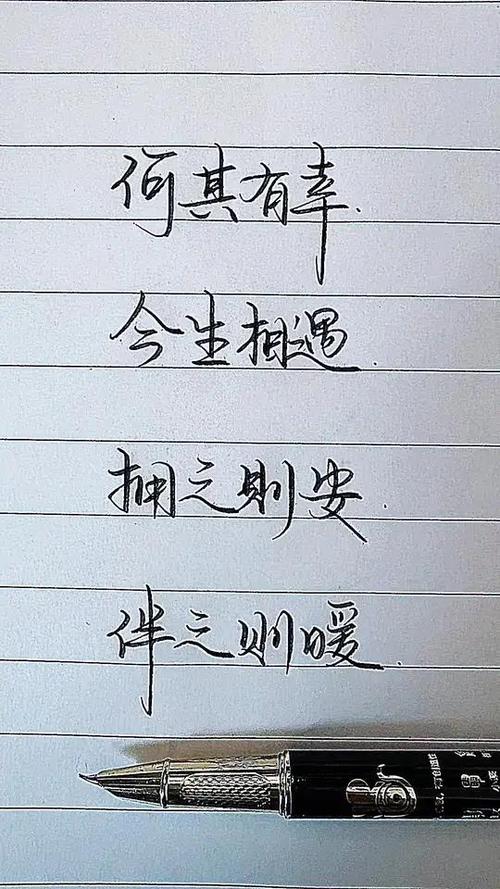 何其有幸.
今生相遇.
拥之则安.
伴之则暖.